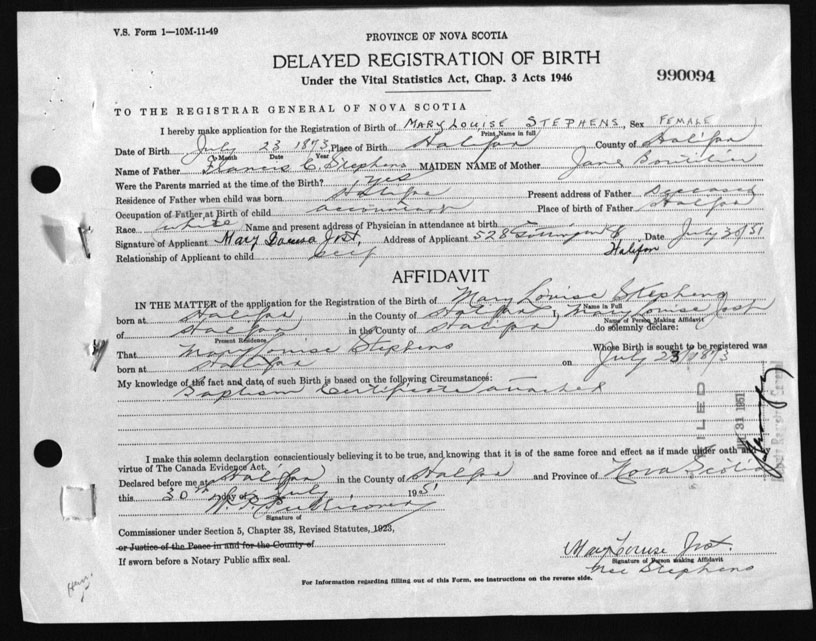 V.S. Form 1—10M-11-49
PROVINCE OF NOVA SCOTIA
DELAYED REGISTRATION OF BIRTH
Under the Vital Statistics Act, Chap. 3 Acts 1946
990094
TO THE REGISTRAR GENERAL OF NOVA SCOTIA
I hereby make application for the Registration of Birth of MARY LOUISE STEPHENS, Sex FEMALE
Print Name in full
Date of Birth July 23 1873 Place of Birth Halifax County of Halifax
Month Date Year
Name of Father Francis C Stephens MAIDEN NAME of Mother Jane Boutilier
Were the Parents married at the time of Birth? Yes
Residence of Father when child was born Halifax Present address of Father Deceased
Occupation of Father at Birth of child accountant Place of birth of Father Halifax
Race white Name and present address of Physician in attendance at birth —
Signature of Applicant Mary Louisa Jost, Address of Applicant 528 Gottingen St Halifax Date July 30/51
Relationship of Applicant to child self
AFFIDAVIT
IN THE MATTER of the application for the Registration of the Birth of Mary Louise Stephens
Name in Full
born at Halifax in the County of Halifax I, Mary Louise Jost
Name of Person Making Affidavit
of Halifax in the County of Halifax do solemnly declare:
Present Residence
That Mary Louise Stephens Whose Birth is sought to be registered was
born at Halifax on July 23/1873
My knowledge of the fact and date of such Birth is based on the following Circumstances:
Baptism Certificate attached
FILED
31 1951
I make this solemn declaration conscientiously believing it to be true, and knowing that it is of the same force and effect as if made under oath and
virtue of The Canada Evidence Act.
Declared before me at Halifax in the County of Halifax and Province of Nova Scotia
this 30th day of July 1951
Signature of
Commissioner under Section 5, Chapter 38, Revised Statutes, 1923,
or Justice of the Peace in and for the County of
If sworn before a Notary Public affix seal.
Mary Louise Jost.
Signature of Person making Affidavit
nee Stephens
For Information regarding filling out of this Form, see instructions on the reverse side.